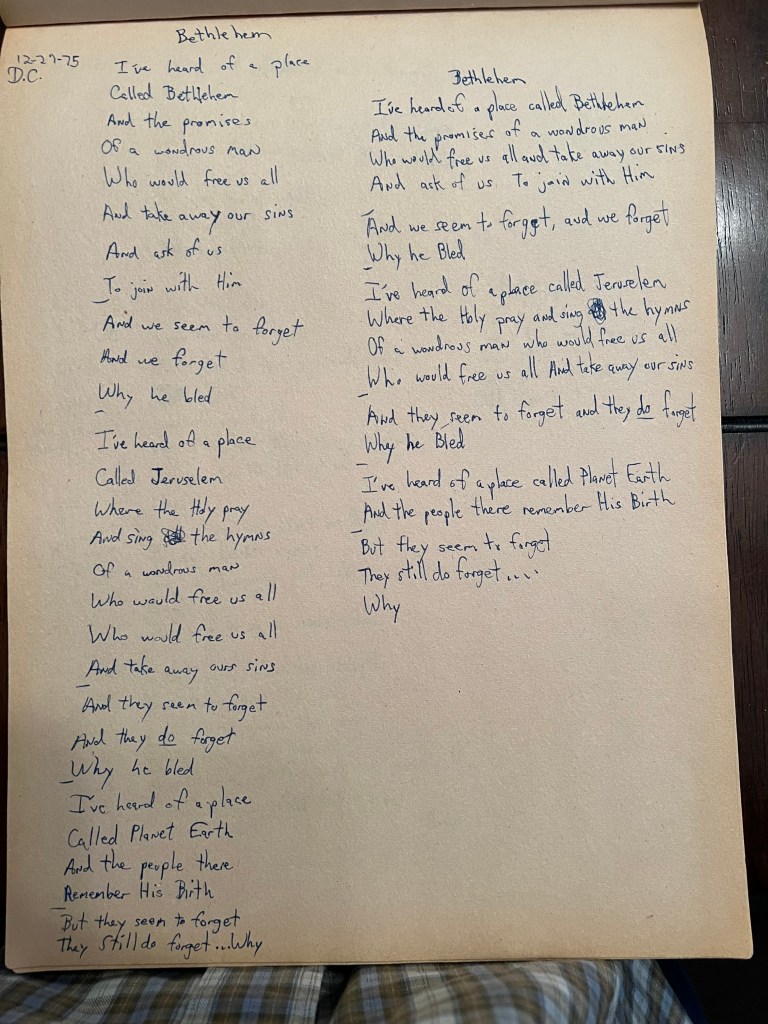 Bethlehem
12-29-75
D.C.
I've heard of a place
Called Bethlehem
And the promises
Of a wondrous man
Who would free us all
And take away our sins
And ask of us
To join with Him
And we seem to forget
And we forget
Why he bled
I've heard of a place
Called Jeruselem
Where the Holy pray
And sing the hymns
Of a wondrous man
Who would free us all
Who would free us all
And take away ours sins
And they seem to forget
And they do forget
Why he bled
I've heard of a place
Called Planet Earth
And the people there
Remember His Birth
But they seem to forget
They still do forget...Why
Bethlehem
I've heard of a place called Bethlehem
And the promises of a wondrous man
Who would free us all and take away our sins
And ask of us To join with Him
And we seem to forget, and we forget
Why he Bled
I've heard of a place called Jeruselem
Where the Holy pray and sing the hymns
Of a wondrous man who would free us all
Who would free us all And take away our sins
And they seem to forget and they do forget
Why he Bled
I've heard of a place called Planet Earth
And the people there remember His Birth
But they seem to forget
They still do forget....
Why